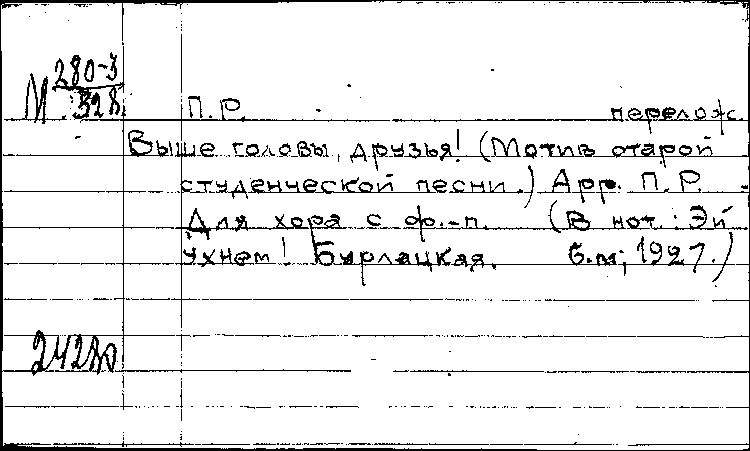 М 280-3
328
П.Р. перелож.
Выше головы, друзья! (Мотив старой
студенческой песни.) Арр. П.Р.
Для хора с ф.-п. (В нот.: Эй
ухнем! Бурлацкая. б.м., 1927.)
24280